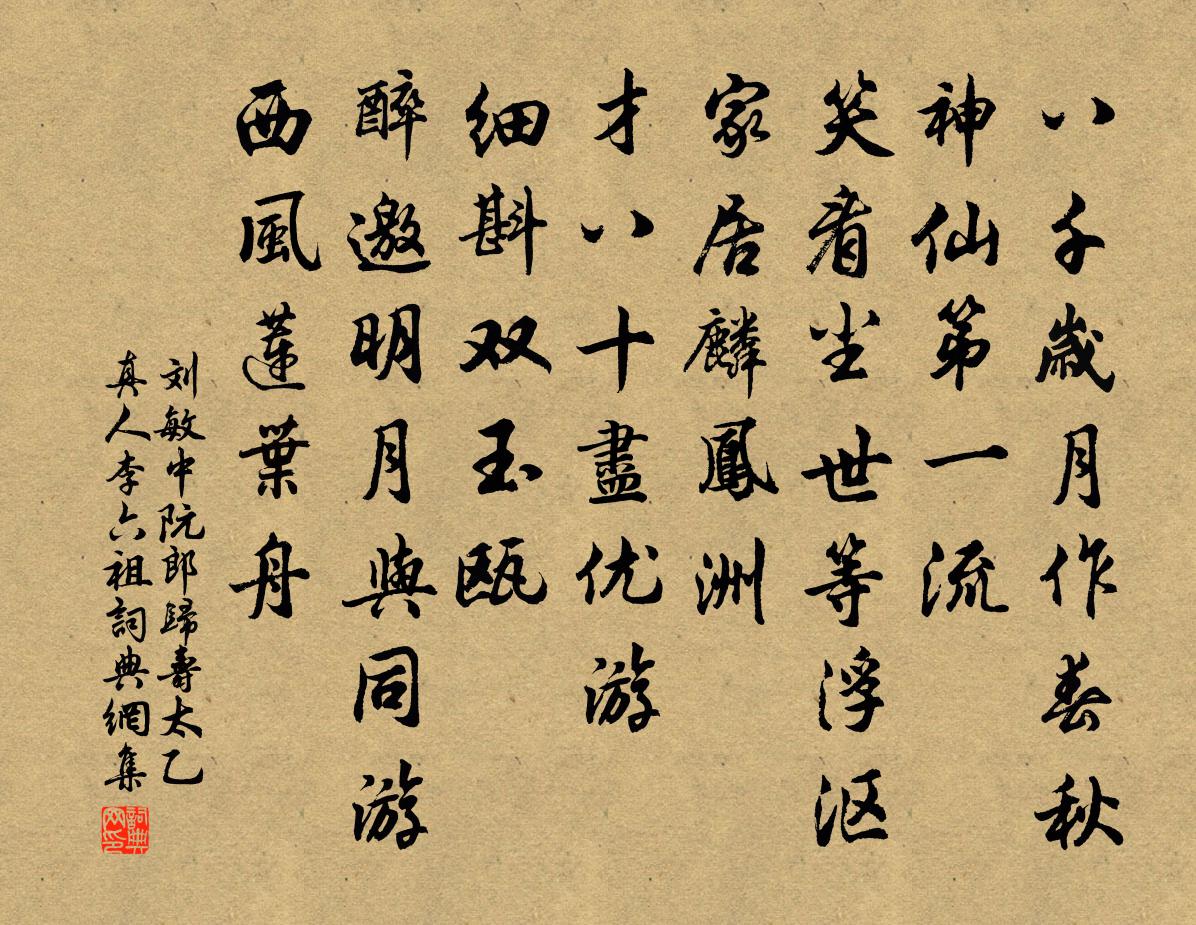 八千歲月作春秋
神仙第一流
笑看尘世等浮沤
家居麟鳳洲
才八十盡优游
细斟双玉瓯
醉邀明月與同游
西風蓮葉舟
刘敏中阮郎歸壽太乙
真人李六祖詞典網集
詞典
网印